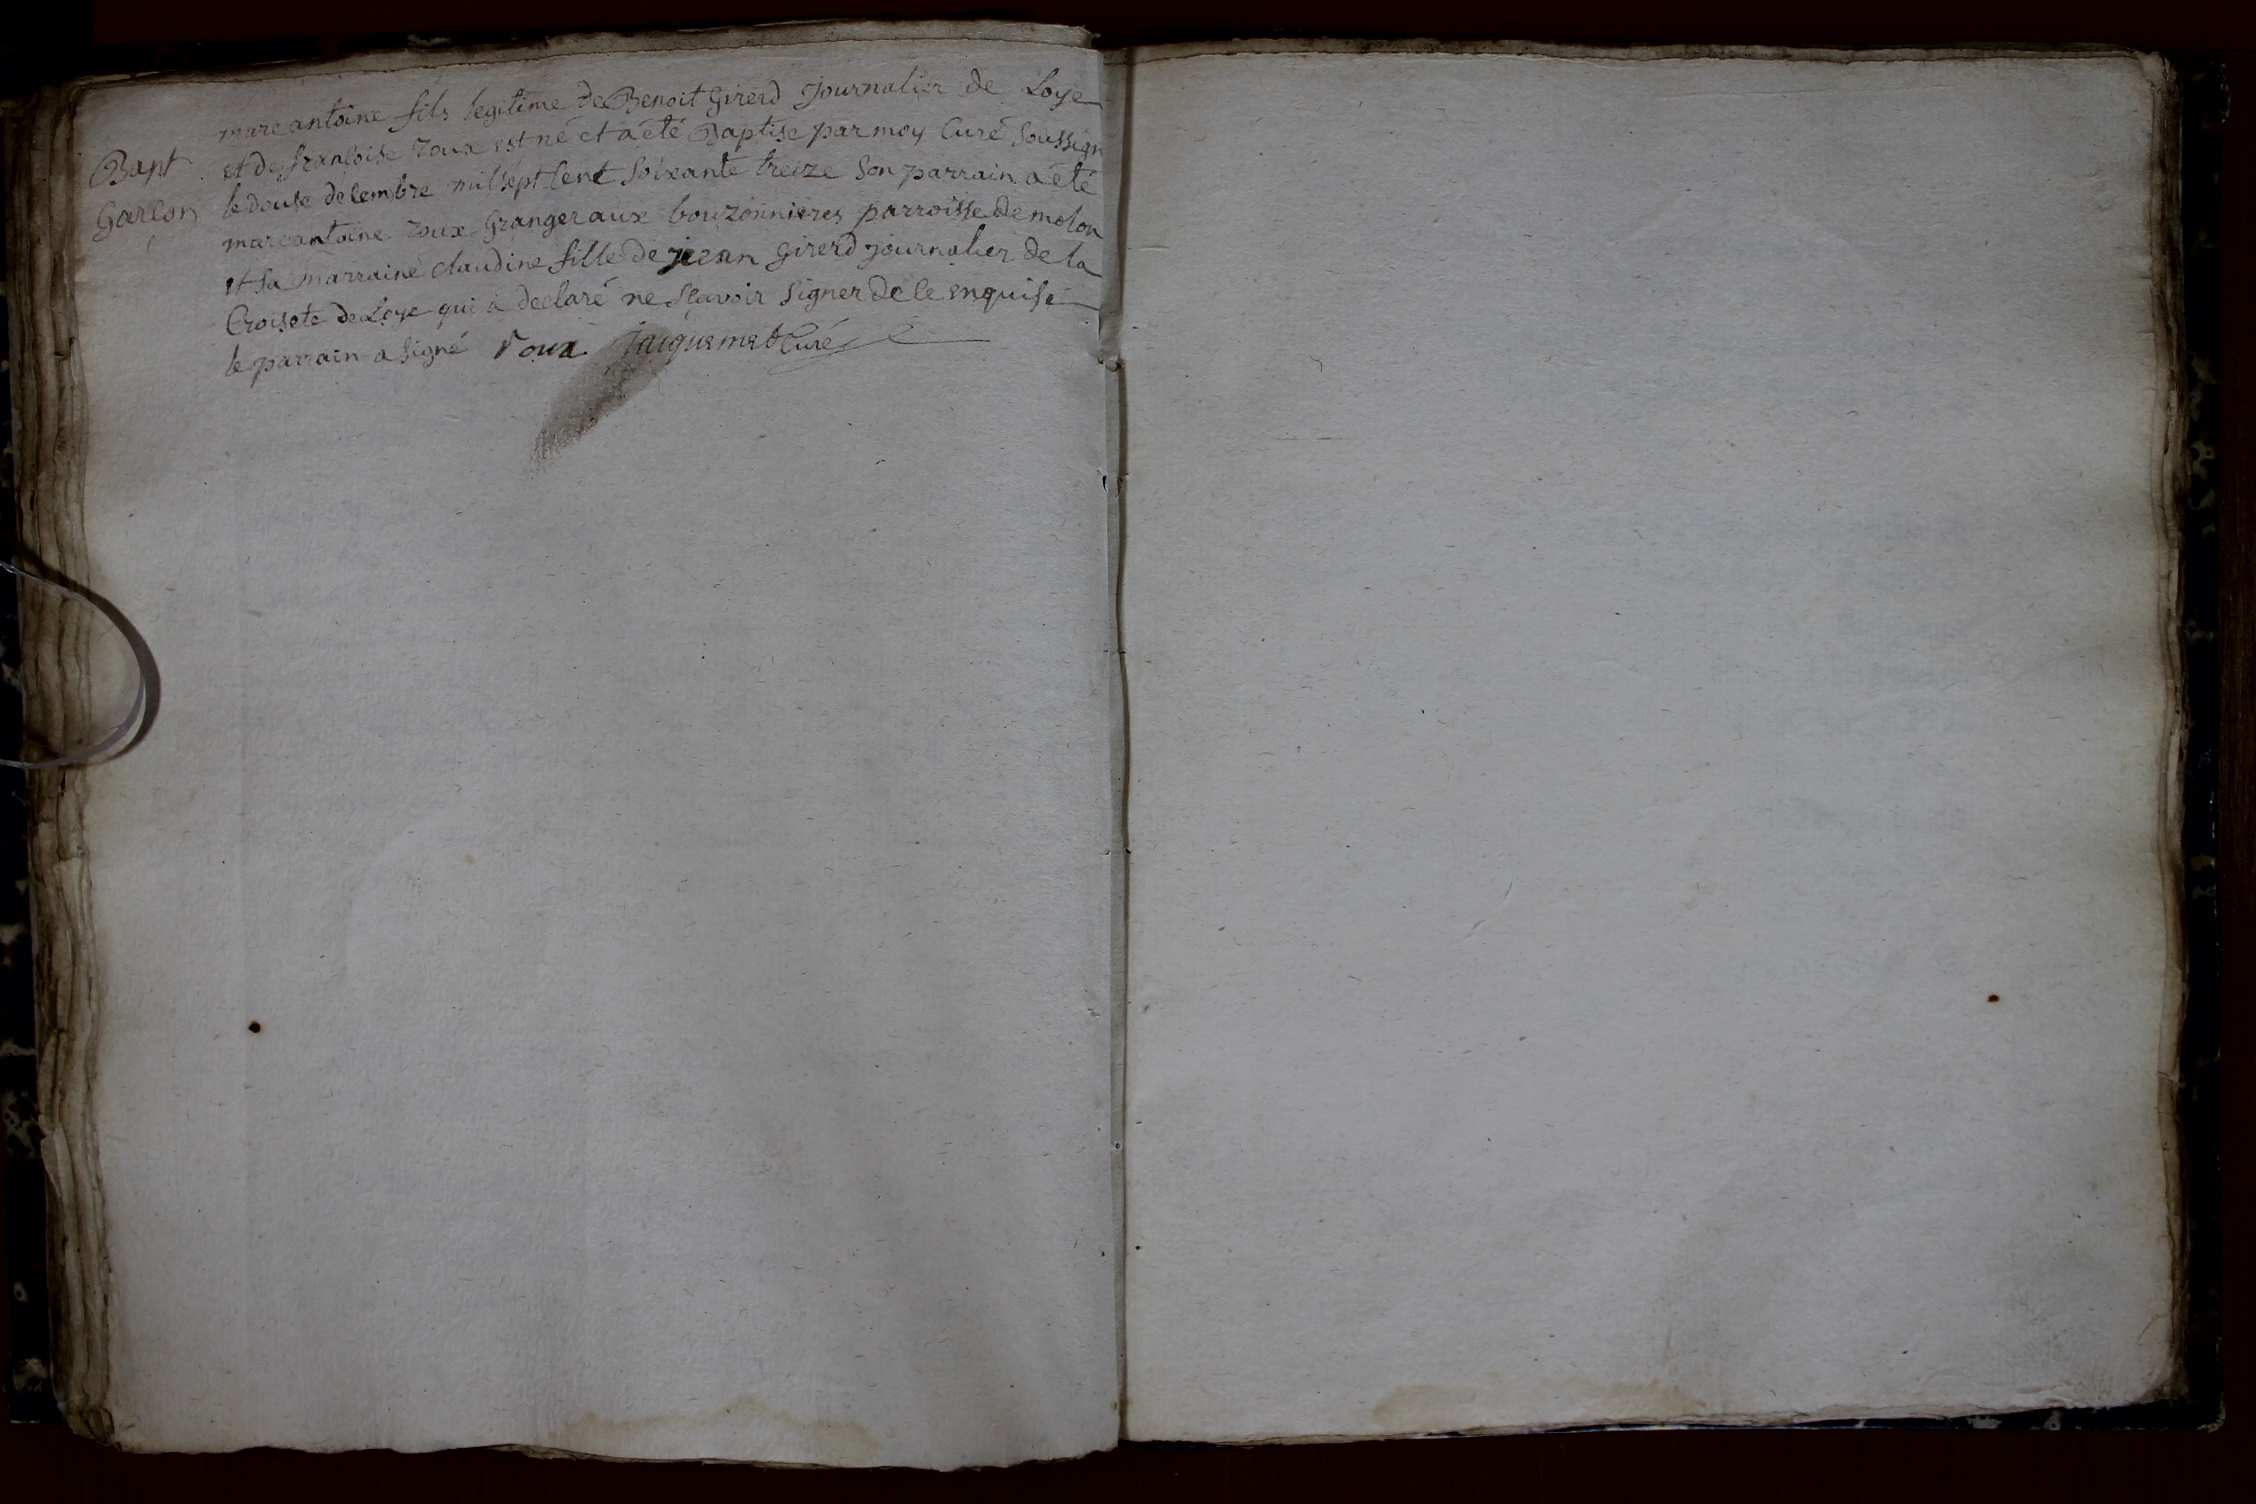 Bapt.
Garçon
marc antoine fils legitime de Benoit Girerd journalier de Loye
et de françoise roux est né et a été Baptise par moy Curé Soussign
le douse decembre mil sept cent soixante treize son parrain a été
marc antoine roux Granger aux bouzonnieres parroisse de molon
et sa marraine claudine fille de jean Girerd journalier de la
Croisete de Loye qui a declaré ne scavoir signer de ce enquise
le parrain a signé roux Jacquemet Curé